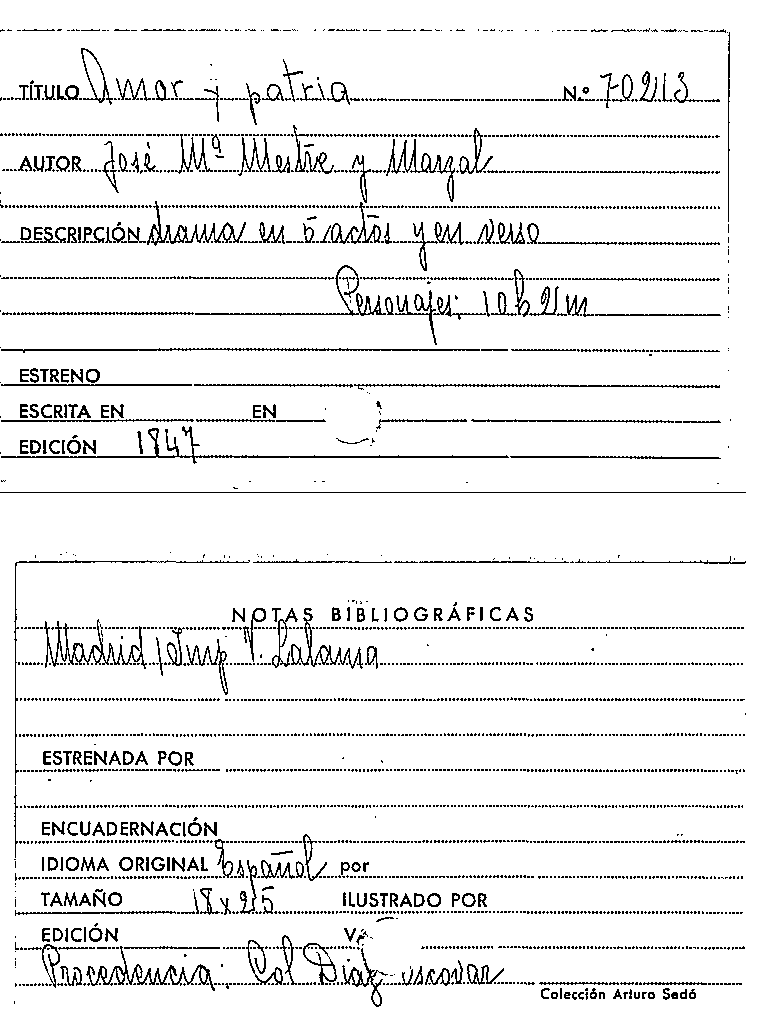 TÍTULO Amor y patria N.º 70213
AUTOR José Mª Mestre y Marzal
DESCRIPCIÓN drama en 5 actos y en verso
Personajes: 10 h 2 m
ESTRENO
ESCRITA EN EN
EDICIÓN 1847
NOTAS BIBLIOGRÁFICAS
Madrid / Imp V. Lalama
ESTRENADA POR
ENCUADERNACIÓN
IDIOMA ORIGINAL Español por
TAMAÑO 18 x 25 ILUSTRADO POR
EDICIÓN
Procedencia: Col Díaz escovar
Colección Arturo Sedó